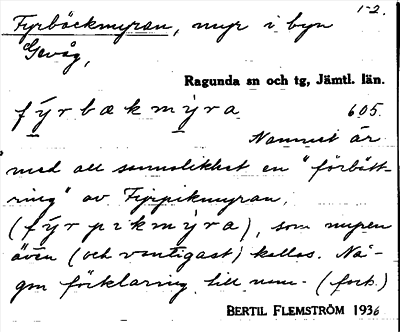 1-2.
Fyrbäckmyran, myr i byn
Gevåg,
Ragunda sn och tg, Jämtl. län.
fy̱rbækmy̱ra 605.
Namnet är
med all sannolikhet en "förbätt-
ring" av Fyrpikmyran,
(fy̱rpikmy̱ra), som myren
även (och vanligast) kallas. Nå-
gon förklaring till nam- (forts.)
BERTIL FLEMSTRÖM 1936